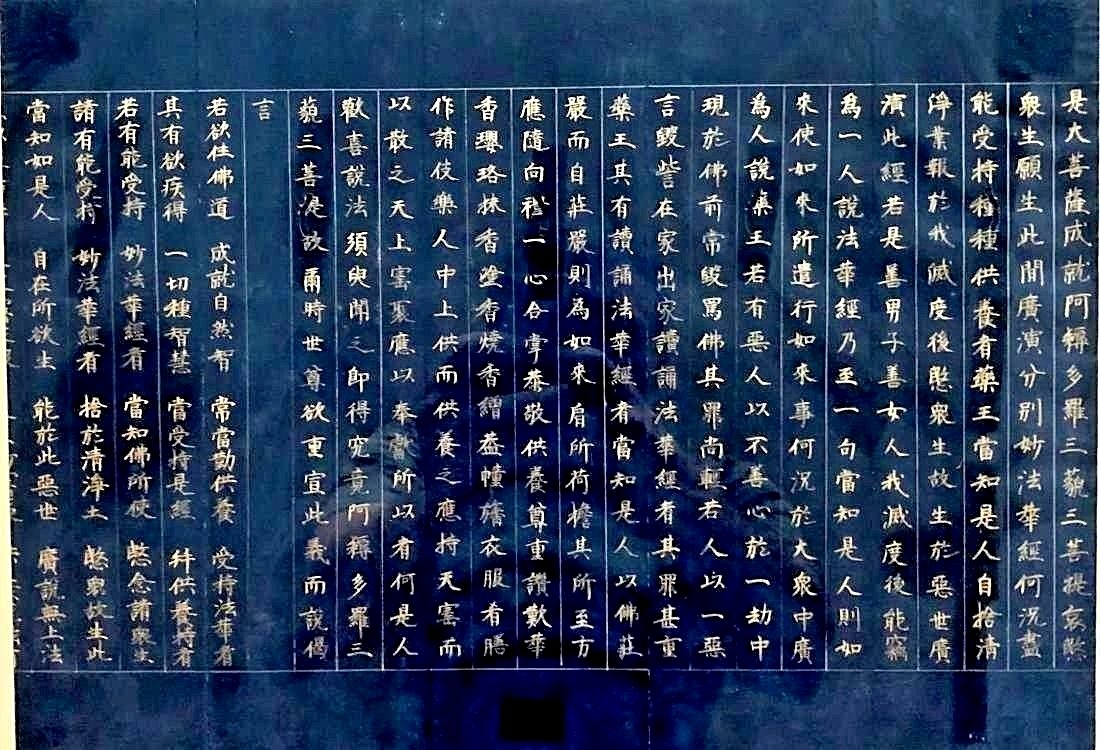 是大菩薩成就阿耨多羅三藐三菩提哀愍
衆生願生此間廣演分別妙法華經何況盡
能受持種種供養者藥王當知是人自捨清
淨業報於我滅度後愍衆生故生於惡世廣
演此經若是善男子善女人我滅度後能竊
為一人說法華經乃至一句當知是人則如
來使如來所遣行如來事何況於大衆中廣
為人說藥王若有惡人以不善心於一劫中
現於佛前常毀罵佛其罪尚輕若人以一惡
言毀訾在家出家讀誦法華經者其罪甚重
藥王其有讀誦法華經者當知是人以佛莊
嚴而自莊嚴則為如來肩所荷擔其所至方
應隨向禮一心合掌恭敬供養尊重讚歎華
香瓔珞抹香塗香燒香繒蓋幢幡衣服肴膳
作諸伎樂人中上供而供養之應持天寶而
以散之天上寶聚應以奉獻所以者何是人
歡喜說法須臾聞之即得究竟阿耨多羅三
藐三菩提故爾時世尊欲重宣此義而說偈
言
若欲住佛道 成就自然智 常當勤供養 受持法華者
其有欲疾得 一切種智慧 當受持是經 并供養持者
若有能受持 妙法華經者 當知佛所使 愍念諸衆生
諸有能受持 妙法華經者 捨於清淨土 愍衆故生此
當知如是人 自在所欲生 能於此惡世 廣說無上法